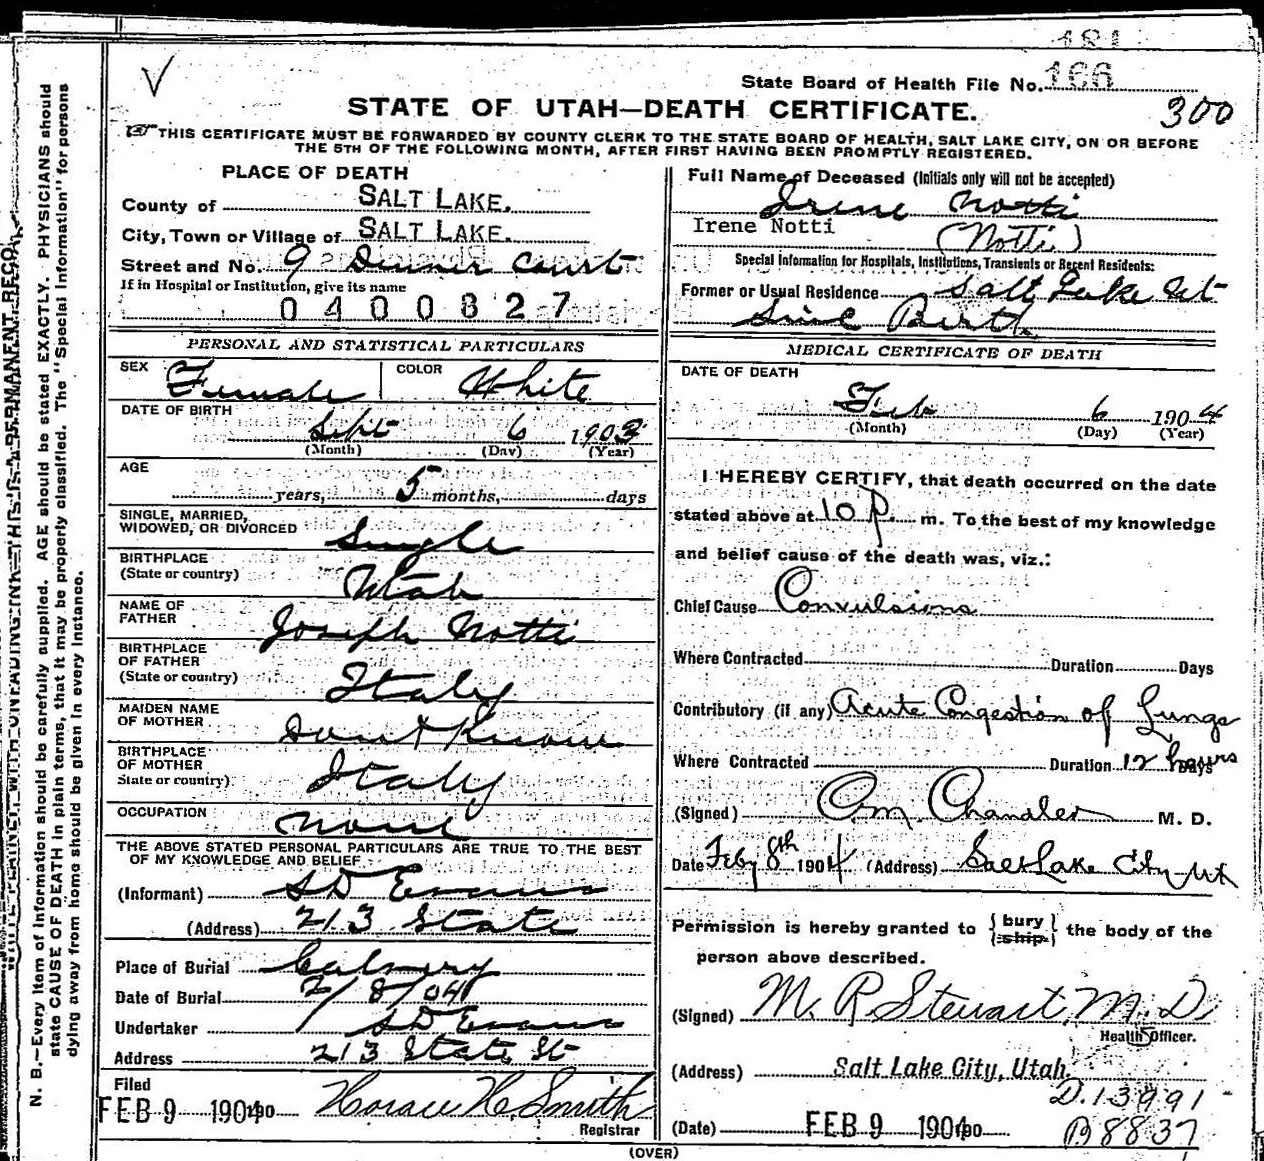 181
State Board of Health File No. 166
STATE OF UTAH—DEATH CERTIFICATE.
300
THIS CERTIFICATE MUST BE FORWARDED BY COUNTY CLERK TO THE STATE BOARD OF HEALTH, SALT LAKE CITY, ON OR BEFORE
THE 5TH OF THE FOLLOWING MONTH, AFTER FIRST HAVING BEEN PROMPTLY REGISTERED.
PLACE OF DEATH
County of SALT LAKE.
City, Town or Village of SALT LAKE.
Street and No. 9 Court
If in Hospital or Institution, give its name
0400827
PERSONAL AND STATISTICAL PARTICULARS
SEX Female COLOR White
DATE OF BIRTH
Sept 6 1903
(Month) (Day) (Year)
AGE
years, 5 months, days
SINGLE, MARRIED,
WIDOWED, OR DIVORCED Single
BIRTHPLACE
(State or country) Utah
NAME OF
FATHER Joseph Notti
BIRTHPLACE
OF FATHER
(State or country) Italy
MAIDEN NAME
OF MOTHER Dont Know
BIRTHPLACE
OF MOTHER
State or country) Italy
OCCUPATION none
THE ABOVE STATED PERSONAL PARTICULARS ARE TRUE TO THE BEST
OF MY KNOWLEDGE AND BELIEF
(Informant) SD Evans
(Address) 213 State
Place of Burial Calvery
Date of Burial 2/8/04
Undertaker SD Evans
Address 213 State St
Filed
FEB 9 1904 190 Horace H. Smith
Registrar
Full Name of Deceased (Initials only will not be accepted)
Irene Notti
Irene Notti
(Notti)
Special Information for Hospitals, Institutions, Transients or Recent Residents:
Former or Usual Residence Salt Lake Ut
Since Birth
MEDICAL CERTIFICATE OF DEATH
DATE OF DEATH
Feb 6 1904
(Month) (Day) (Year)
I HEREBY CERTIFY, that death occurred on the date
stated above at 10 P. m. To the best of my knowledge
and belief cause of the death was, viz.:
Chief Cause Convulsions
Where Contracted Duration Days
Contributory (if any) Acute Congestion of Lungs
Where Contracted Duration 12 hours Days
(Signed) Chandler M. D.
Date Feby 8th 1904 (Address) Salt Lake City Ut
Permission is hereby granted to { bury / ship } the body of the
person above described.
(Signed) M. R Stewart, M. D
Health Officer.
(Address) Salt Lake City, Utah.
D. 13991
(Date) FEB 9 1904 190 B 8837
(OVER)
N. B.—Every item of information should be carefully supplied. AGE should be stated EXACTLY. PHYSICIANS should
state CAUSE OF DEATH in plain terms, that it may be properly classified. The "Special Information" for persons
dying away from home should be given in every instance.